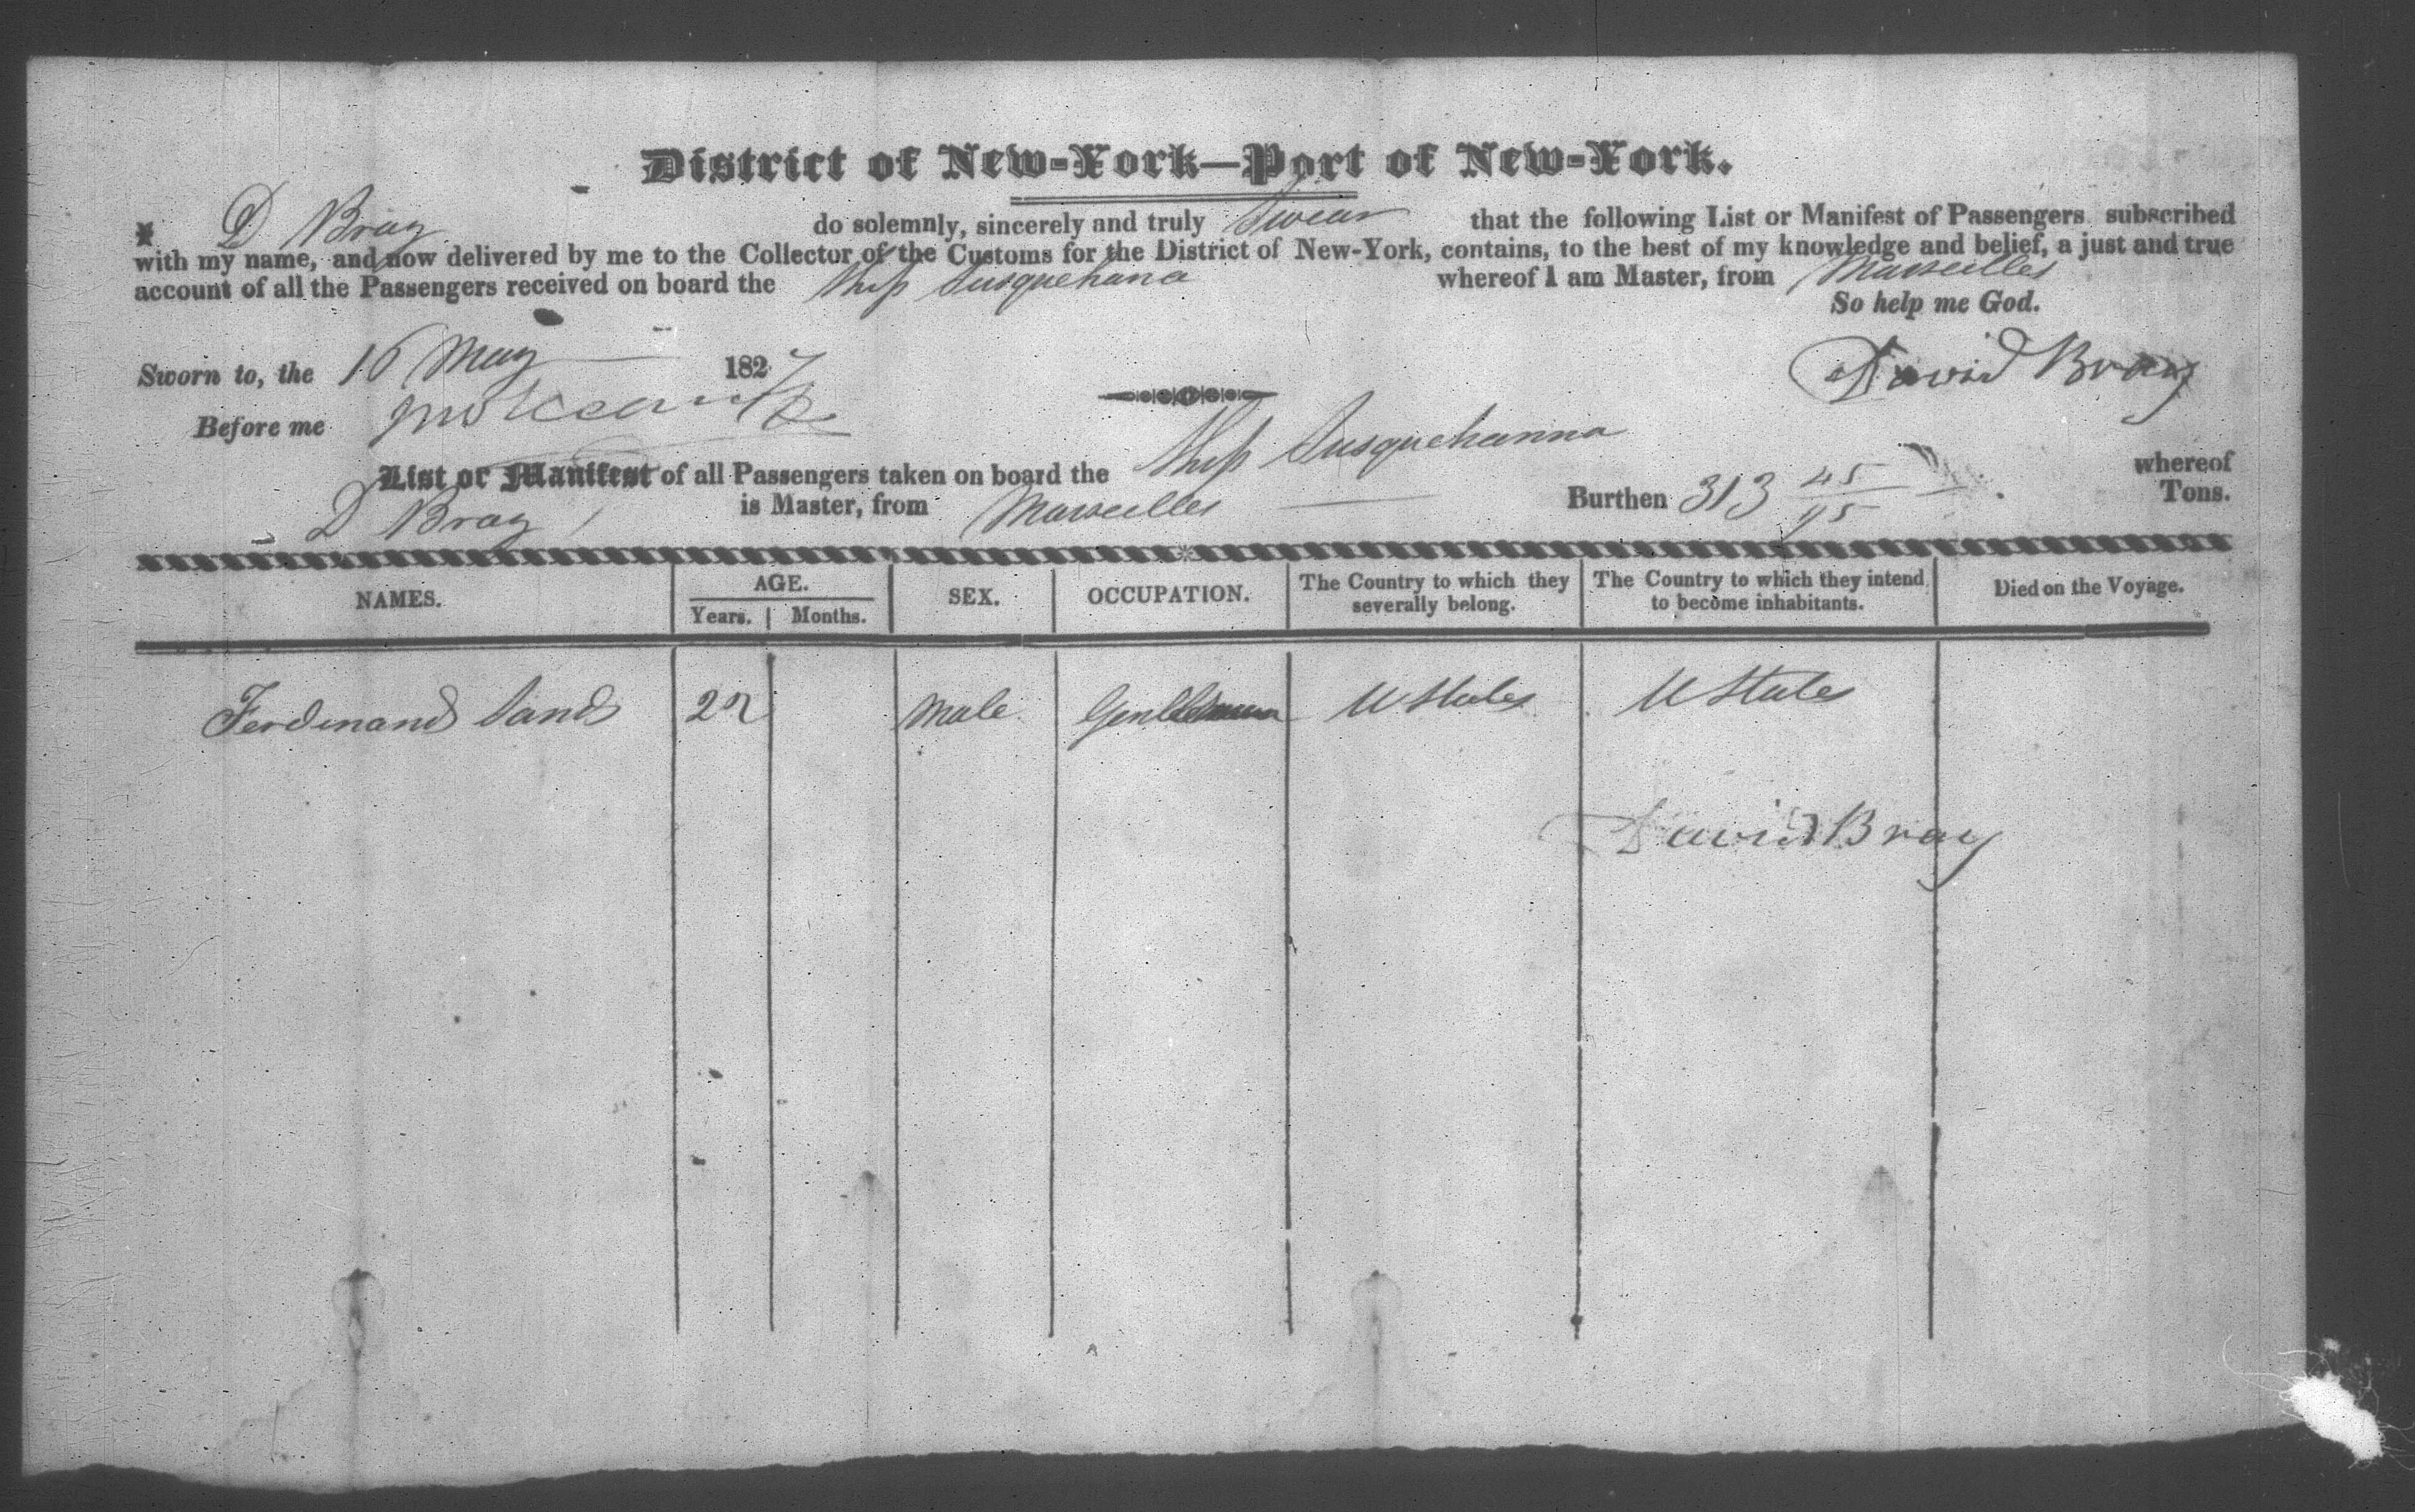 District of New-York—Port of New-York.
I D Bray do solemnly, sincerely and truly Swear that the following List or Manifest of Passengers subscribed
with my name, and now delivered by me to the Collector of the Customs for the District of New-York, contains, to the best of my knowledge and belief, a just and true
account of all the Passengers received on board the Ship Susquehana whereof I am Master, from Marseilles
So help me God.
Sworn to, the 16 May 1827 David Bray
Before me
List or Manifest of all Passengers taken on board the Ship Susquehanna whereof
D Bray is Master, from Marseilles Burthen 313 45/95 Tons.
NAMES. AGE. Years. Months. SEX. OCCUPATION. The Country to which they severally belong. The Country to which they intend to become inhabitants. Died on the Voyage.
Ferdinand Sands 22 Male Gentleman U States U States
David Bray